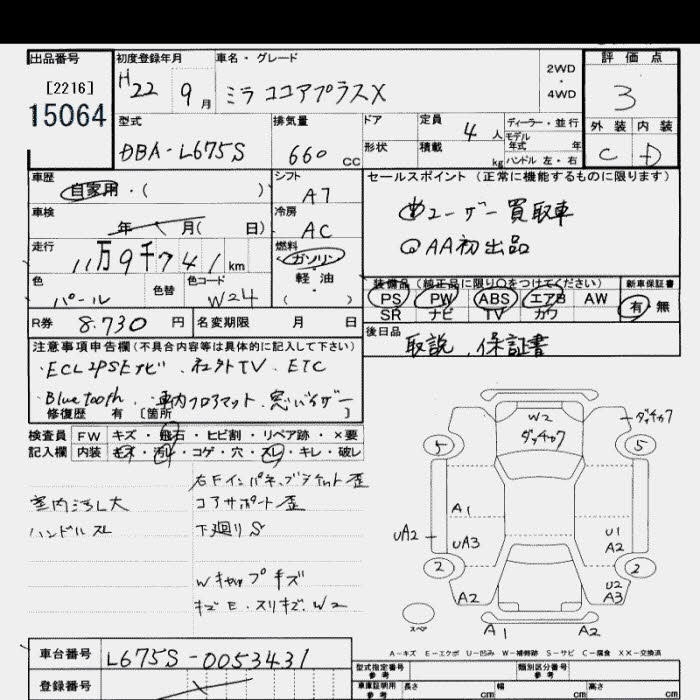 出品番号 初度登録年月 車名・グレード 評価点
[2216] H22 9月 ミラココアプラスX 2WD・4WD 3
15064
型式 排気量 ドア 定員 4人 ディーラー・並行 外装 内装
モデル年式 年
DBA-L675S 660cc 形状 積載 kg ハンドル 左・右 C D
車歴 シフト セールスポイント(正常に機能するものに限ります)
自家用・( ) A7
車検 冷房 ユーザー買取車
年 月(日) AC @AA初出品
走行 燃料
11万9千741km ガソリン・軽油・( )
色 色替 色コード 装備品(純正品に限り○をつけてください) 新車保証書
パール W24 PS PW ABS エアB AW 有・無
SR ナビ TV カワ
R券 8.730円 名変期限 月 日 後日品
取説、保証書
注意事項申告欄(不具合内容等は具体的に記入して下さい)
・ECL2PSEナビ・社外TV・ETC
・Bluetooth・車内フロアマット・窓バイザー
修復歴 有 [箇所 ]
検査員 FW キズ・飛石・ヒビ割・リペア跡・×要
記入欄 内装 キズ・汚レ・コゲ・穴・スレ・キレ・破レ
室内汚レ大
コアサポート歪
ハンドルスレ
下廻りS
Wキャップキズ
キズE・スリキズ・W2
W2
ダッチカワ
ダッチカワ
5 5
A1
UA2 UA3 U1
A2
2 2
A2 U2
A3
スペア
A1 A2
A-キズ E-エクボ U-凹み W-補修跡 S-サビ C-腐食 XX-交換済
車台番号 L675S-0053431
登録番号
型式指定番号 参考 類別区分番号 参考
車庫証明用 参考 長さ cm 幅 cm 高さ cm